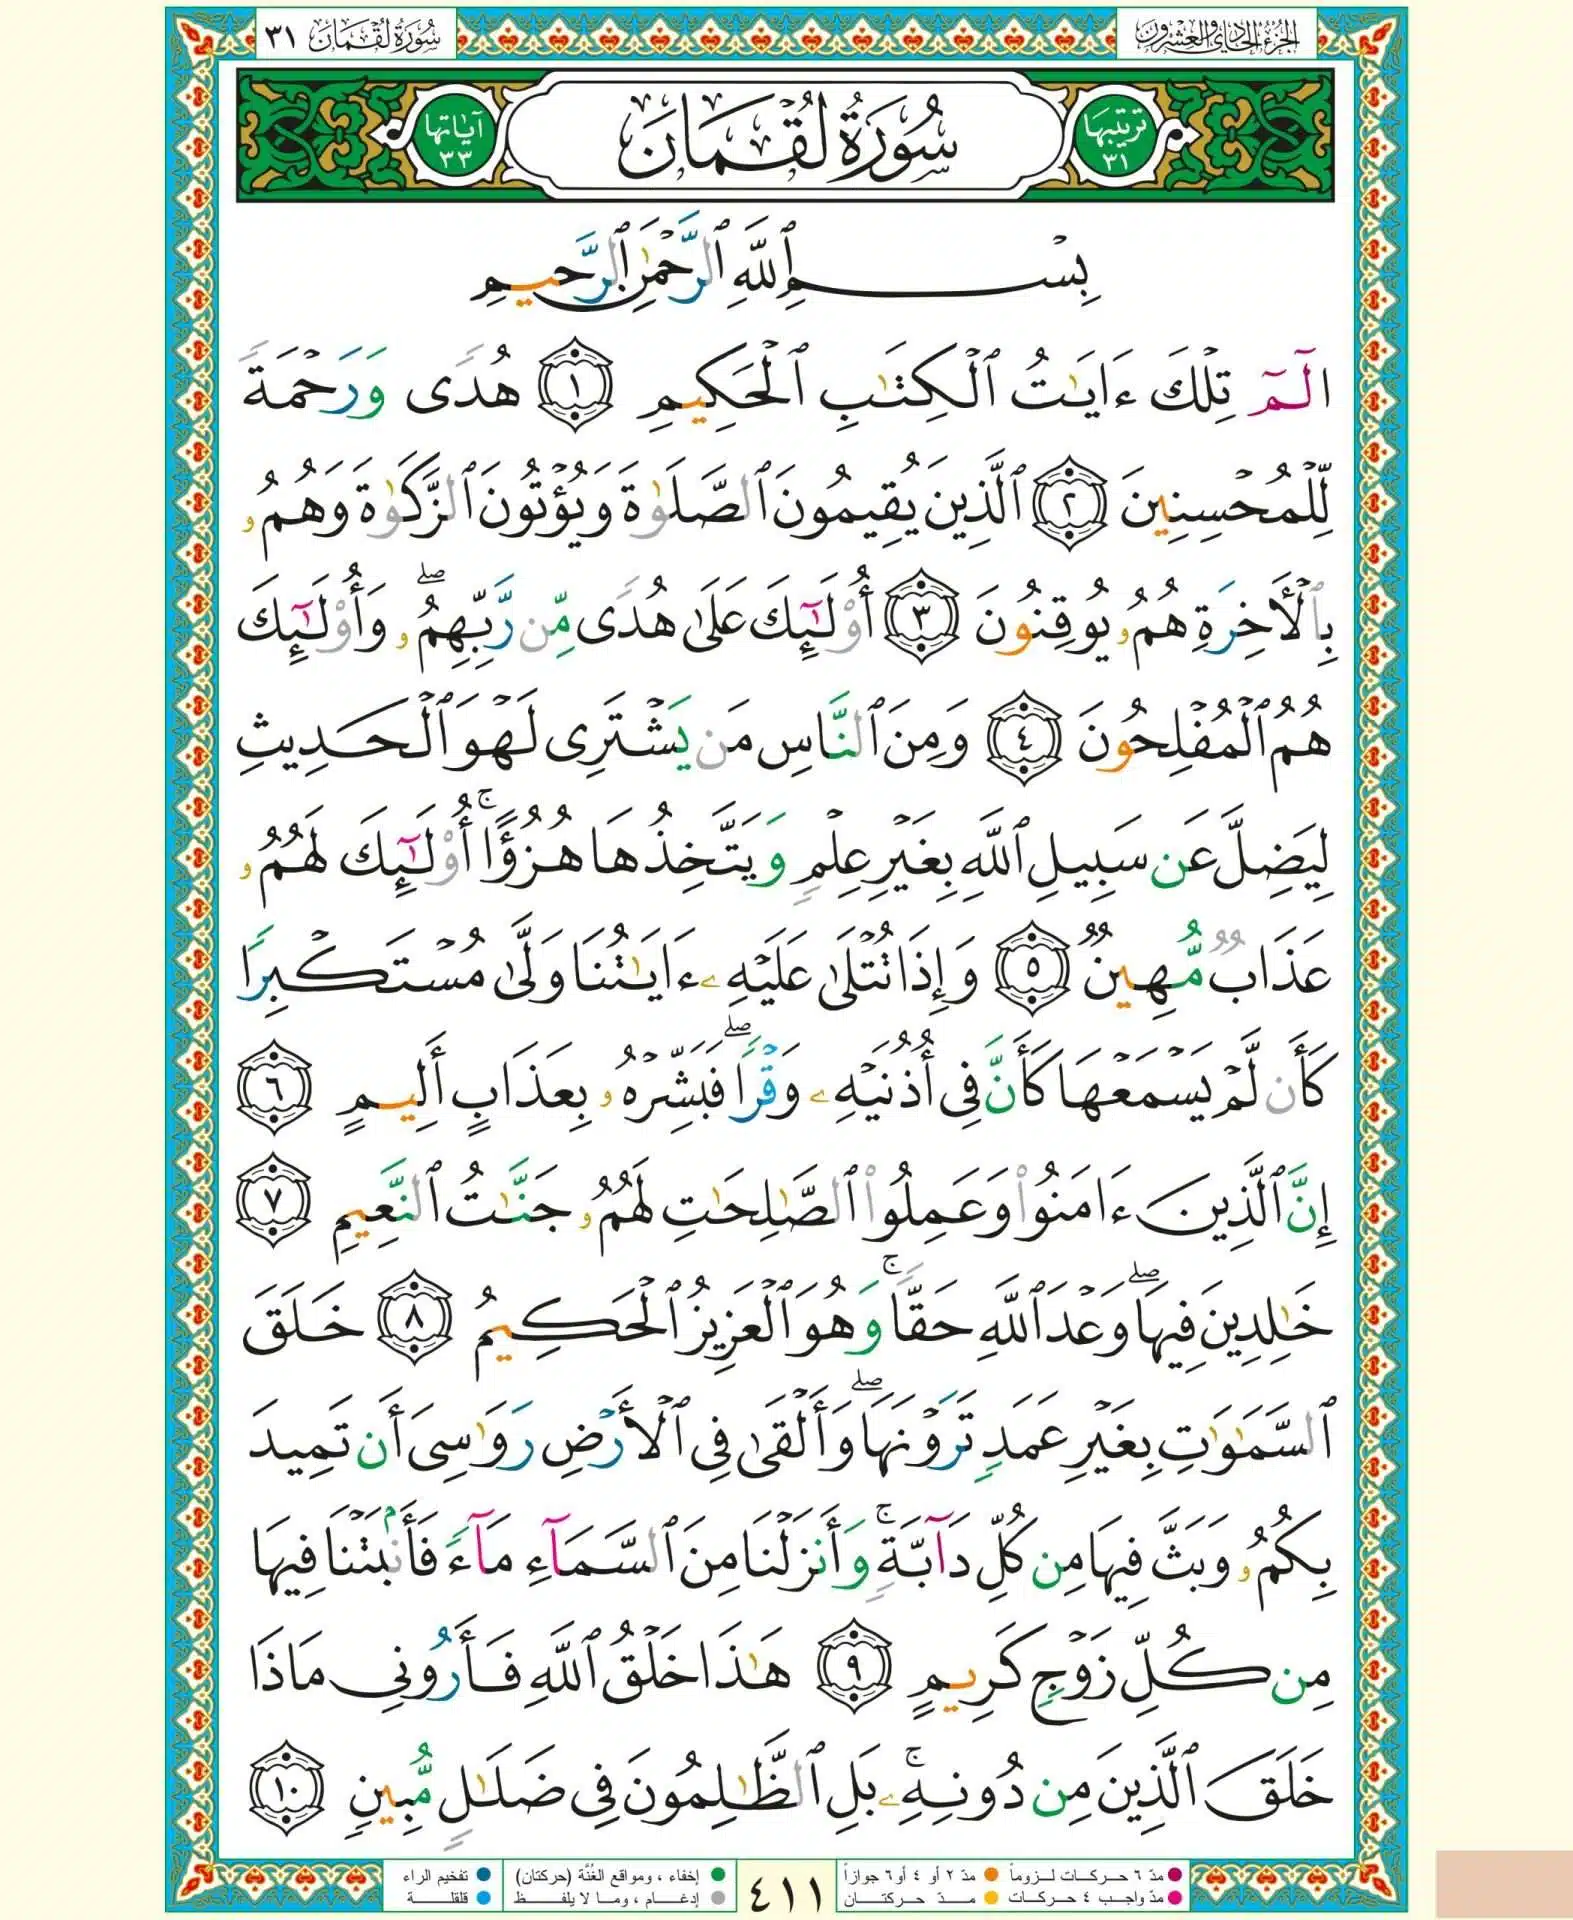 الجزء الحادي والعشرون
سورة لقمان ٣١
ترتيبها ٣١
سُورَةُ لُقْمَان
آياتها ٣٣
بِسْمِ ٱللَّهِ ٱلرَّحْمَٰنِ ٱلرَّحِيمِ
الٓمٓ تِلْكَ ءَايَٰتُ ٱلْكِتَٰبِ ٱلْحَكِيمِ ١ هُدًى وَرَحْمَةً
لِّلْمُحْسِنِينَ ٢ ٱلَّذِينَ يُقِيمُونَ ٱلصَّلَوٰةَ وَيُؤْتُونَ ٱلزَّكَوٰةَ وَهُمُۥ
بِٱلْأَخِرَةِ هُمُۥ يُوقِنُونَ ٣ أُوْلَٰٓئِكَ عَلَىٰ هُدًى مِّن رَّبِّهِمُۥۖ وَأُوْلَٰٓئِكَ
هُمُ ٱلْمُفْلِحُونَ ٤ وَمِنَ ٱلنَّاسِ مَن يَشْتَرِى لَهْوَ ٱلْحَدِيثِ
لِيَضِلَّ عَن سَبِيلِ ٱللَّهِ بِغَيْرِ عِلْمٍ وَيَتَّخِذُهَا هُزُؤًاۚ أُوْلَٰٓئِكَ لَهُمُۥ
عَذَابٌ مُّهِينٌ ٥ وَإِذَا تُتْلَىٰ عَلَيْهِۦ ءَايَٰتُنَا وَلَّىٰ مُسْتَكْبِرًا
كَأَن لَّمْ يَسْمَعْهَا كَأَنَّ فِى أُذُنَيْهِۦ وَقْرًاۖ فَبَشِّرْهُۥ بِعَذَابٍ أَلِيمٍ ٦
إِنَّ ٱلَّذِينَ ءَامَنُواْ وَعَمِلُواْ ٱلصَّٰلِحَٰتِ لَهُمُۥ جَنَّٰتُ ٱلنَّعِيمِ ٧
خَٰلِدِينَ فِيهَاۖ وَعْدَ ٱللَّهِ حَقًّاۚ وَهُوَ ٱلْعَزِيزُ ٱلْحَكِيمُ ٨ خَلَقَ
ٱلسَّمَٰوَٰتِ بِغَيْرِ عَمَدٍ تَرَوْنَهَاۖ وَأَلْقَىٰ فِى ٱلْأَرْضِ رَوَٰسِىَ أَن تَمِيدَ
بِكُمُۥ وَبَثَّ فِيهَا مِن كُلِّ دَآبَّةٍۚ وَأَنزَلْنَا مِنَ ٱلسَّمَآءِ مَآءً فَأَنۢبَتْنَا فِيهَا
مِن كُلِّ زَوْجٍ كَرِيمٍ ٩ هَٰذَا خَلْقُ ٱللَّهِ فَأَرُونِى مَاذَا
خَلَقَ ٱلَّذِينَ مِن دُونِهِۦۚ بَلِ ٱلظَّٰلِمُونَ فِى ضَلَٰلٍ مُّبِينٍ ١٠
مدّ ٦ حركات لزوماً
مدّ ٢ أو ٤ أو ٦ جوازاً
مدّ واجب ٤ حركات
مدّ حركتان
٤١١
إخفاء ، ومواقع الغُنَّة (حركتان)
تفخيم الراء
إدغام ، وما لا يلفظ
قلقلة